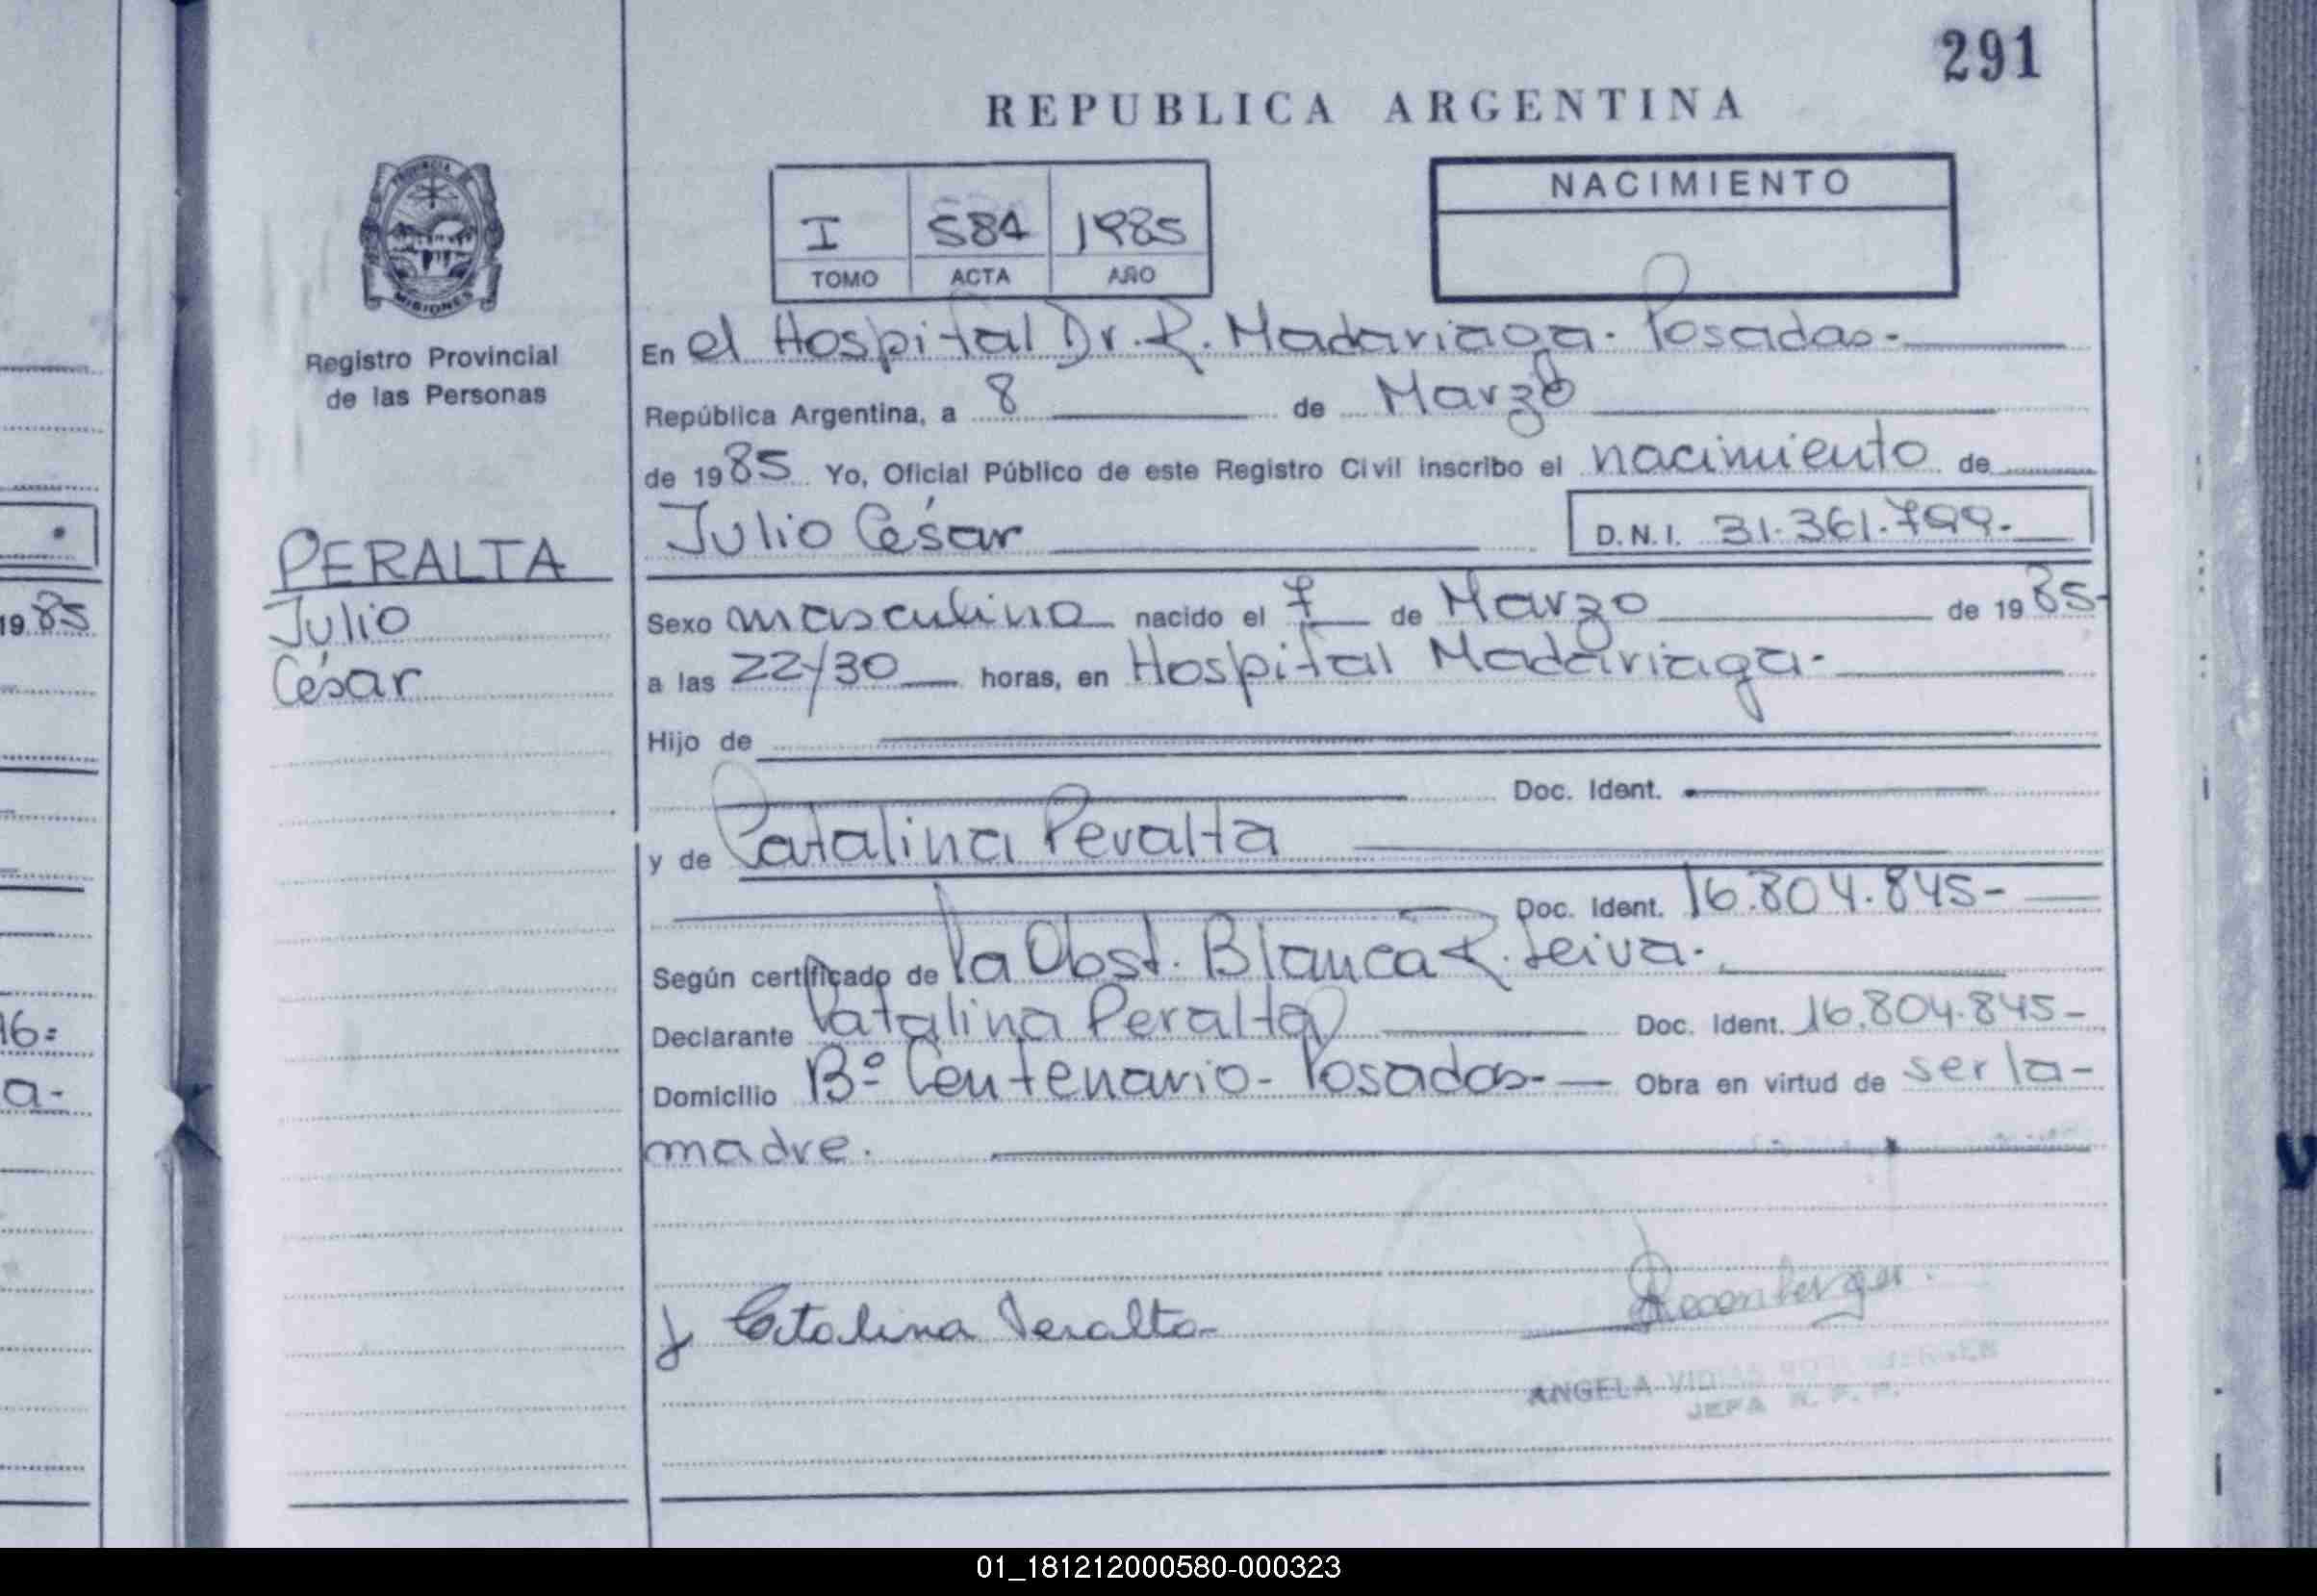 291
REPUBLICA ARGENTINA
PROVINCIA
MISIONES
Registro Provincial
de las Personas
I 584 1985
TOMO ACTA AÑO
NACIMIENTO
En el Hospital Dr. R. Madariaga. Posadas.
República Argentina, a 8 de Marzo
de 1985 Yo, Oficial Público de este Registro Civil inscribo el nacimiento de
Julio César
D.N.I. 31.361.799.
PERALTA
Julio
César
Sexo masculino nacido el 7 de Marzo de 1985-
a las 22/30 horas, en Hospital Madariaga.
Hijo de
Doc. Ident.
y de Catalina Peralta
Doc. Ident. 16.804.845-
Según certificado de la Obst. Blanca R. Leiva.
Declarante Catalina Peralta Doc. Ident. 16.804.845-
Domicilio Bº Centenario - Posadas- Obra en virtud de ser la-
madre.
Catalina Peralta
ANGELA
JEFA R. P. P.
1985
16=
a-
01_181212000580-000323